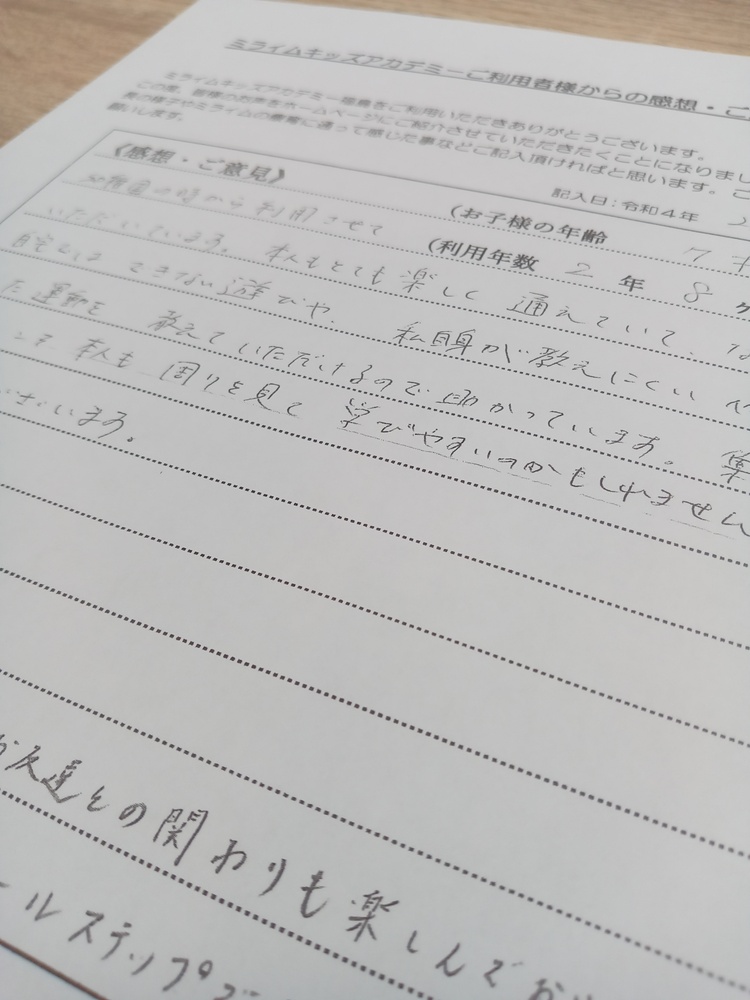 ミライムキッズアカデミーご利用者様からの感想・ご
ミライムキッズアカデミー をご利用いただきありがとうございます。
この度、皆様のお声をホームページにご紹介させていただきたくことになりまし
様の様子やミライムの療育に通って感じた事などご記入頂ければと思います。ご
願いします。
記入日:令和4年
《感想・ご意見》
(お子様の年齢 7 才
(利用年数 2 年 8 ヶ
幼稚園の時から利用させて
いただいています。本人もとても楽しく通えていて、
自宅では できない遊びや、私自身が教えにくい
た運動を 教えていただけるので助かっています。集
本人も 周りを見て 学びやすいのかもしれません
ございます。
お友達との関わりも楽しんで
ールステップで